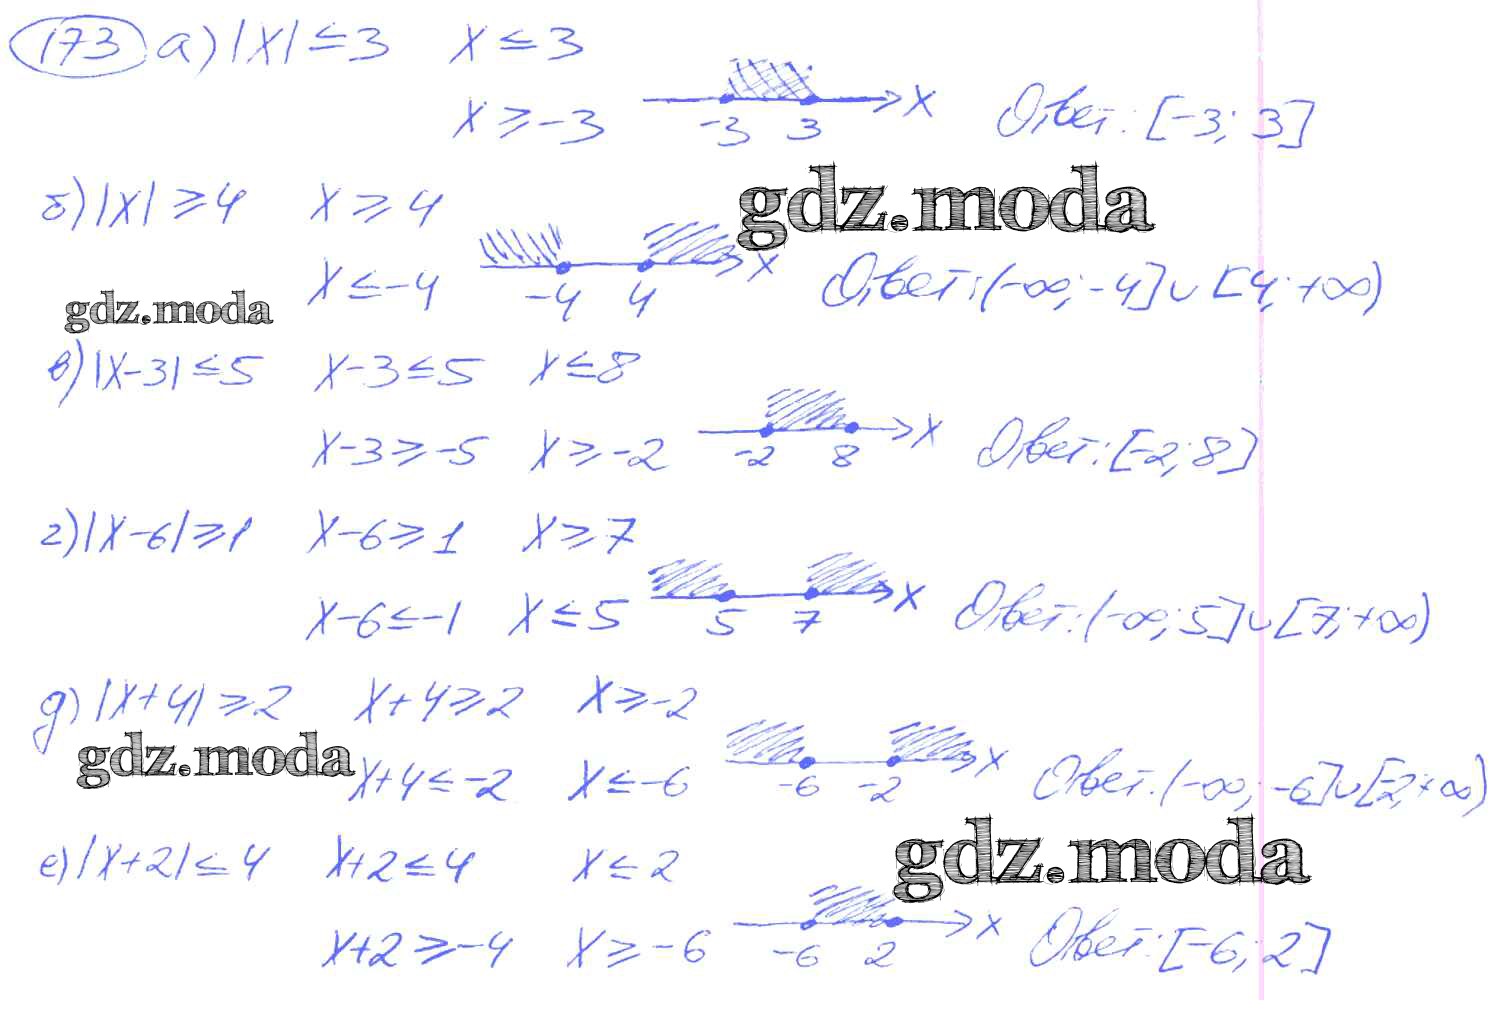 173 а) |x| ≤ 3 x ≤ 3
x ≥ -3 -3 3 x Ответ: [-3; 3]
б) |x| ≥ 4 x ≥ 4
gdz.moda
x ≤ -4 -4 4 x Ответ: (-∞; -4] ∪ [4; +∞)
gdz.moda
в) |x-3| ≤ 5 x-3 ≤ 5 x ≤ 8
x-3 ≥ -5 x ≥ -2 -2 8 x Ответ: [-2; 8]
г) |x-6| ≥ 1 x-6 ≥ 1 x ≥ 7
x-6 ≤ -1 x ≤ 5 5 7 x Ответ: (-∞; 5] ∪ [7; +∞)
д) |x+4| ≥ 2 x+4 ≥ 2 x ≥ -2
gdz.moda
x+4 ≤ -2 x ≤ -6 -6 -2 x Ответ: (-∞; -6] ∪ [-2; +∞)
е) |x+2| ≤ 4 x+2 ≤ 4 x ≤ 2
gdz.moda
x+2 ≥ -4 x ≥ -6 -6 2 x Ответ: [-6; 2]